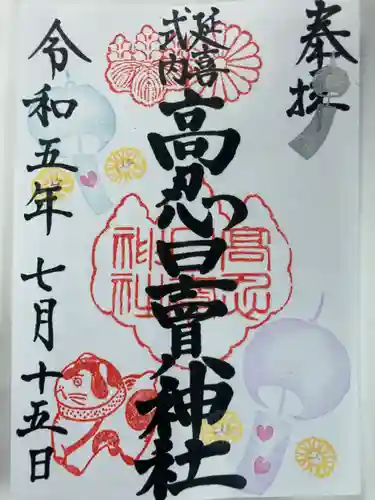 奉拝
延喜
式内
高忍日賣神社
令和五年 七月十五日
高忍
日賣
神社